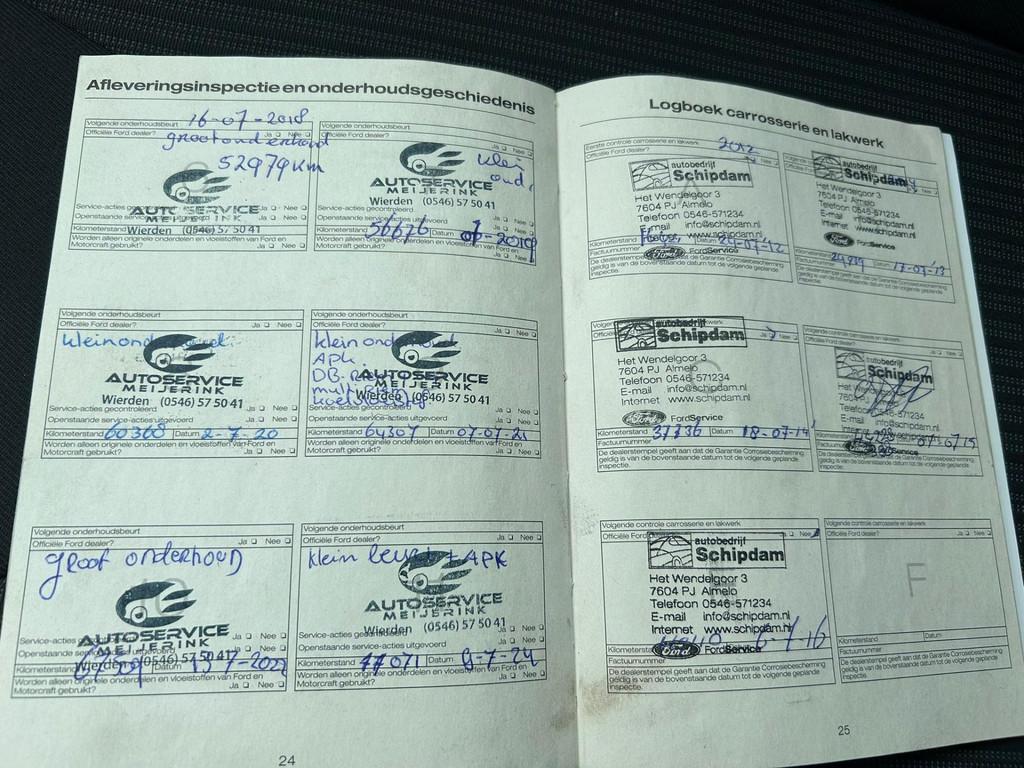 Afleveringsinspectie en onderhoudsgeschiedenis
Volgende onderhoudsbeurt 16-07-2018
Officiële Ford dealer? Ja Nee
groot onderhoud
52979 km
AUTOSERVICE
MEIJERINK
Wierden (0546) 57 50 41
Service-acties Ja Nee
Openstaande Ja Nee
Kilometerstand
Worden alleen originele onderdelen en vloeistoffen van Ford en
Motorcraft gebruikt? Ja Nee
Volgende onderhoudsbeurt
Officiële Ford dealer? Ja Nee
klein
ond.
AUTOSERVICE
MEIJERINK
Wierden (0546) 57 50 41
Service-acties gecontroleerd Ja Nee
Openstaande service-acties uitgevoerd Ja Nee
Kilometerstand 56626 Datum 07-2019
Worden alleen originele onderdelen en vloeistoffen van Ford en
Motorcraft gebruikt? Ja Nee
Volgende onderhoudsbeurt
Officiële Ford dealer? Ja Nee
klein ond
AUTOSERVICE
MEIJERINK
Wierden (0546) 57 50 41
Service-acties gecontroleerd Ja Nee
Openstaande service-acties uitgevoerd Ja Nee
Kilometerstand 60368 Datum 2-7-20
Worden alleen originele onderdelen en vloeistoffen van Ford en
Motorcraft gebruikt? Ja Nee
Volgende onderhoudsbeurt
Officiële Ford dealer? Ja Nee
klein ond
APK
AUTOSERVICE
MEIJERINK
Wierden (0546) 57 50 41
Service-acties gecontroleerd Ja Nee
Openstaande service-acties uitgevoerd Ja Nee
Kilometerstand 64307 Datum 07-07-21
Worden alleen originele onderdelen en vloeistoffen van Ford en
Motorcraft gebruikt? Ja Nee
Volgende onderhoudsbeurt
Officiële Ford dealer? Ja Nee
groot onderhoud
AUTOSERVICE
MEIJERINK
Wierden (0546) 57 50 41
Service-acties Ja Nee
Openstaande Ja Nee
Kilometerstand Datum
Worden alleen originele onderdelen en vloeistoffen van Ford en
Motorcraft gebruikt? Ja Nee
Volgende onderhoudsbeurt
Officiële Ford dealer? Ja Nee
klein beurt + APK
AUTOSERVICE
MEIJERINK
Wierden (0546) 57 50 41
Service-acties Ja Nee
Openstaande service-acties uitgevoerd Ja Nee
Kilometerstand 77071 Datum 7-24
Worden alleen originele onderdelen en vloeistoffen van Ford en
Motorcraft gebruikt? Ja Nee
24
Logboek carrosserie en lakwerk
Eerste controle carrosserie en lakwerk 2012
Officiële Ford dealer? Nee
autobedrijf
Schipdam
Het Wendelgoor 3
7604 PJ Almelo
Telefoon 0546-571234
E-mail info@schipdam.nl
Internet www.schipdam.nl
Kilometerstand Datum 24-07-'12
Ford FordService
De dealerstempel geeft aan dat de Garantie Carrosseriebescherming
geldig is van de bovenstaande datum tot de volgende geplande
inspectie.
autobedrijf
Schipdam
Het Wendelgoor 3
7604 PJ Almelo
Telefoon 0546-571234
E-mail info@schipdam.nl
Internet www.schipdam.nl
Ford FordService
Kilometerstand Datum 17-07-'13
Factuurnummer
De dealerstempel geeft aan dat de Garantie Carrosseriebescherming
geldig is van de bovenstaande datum tot de volgende geplande
inspectie.
autobedrijf
Schipdam
Het Wendelgoor 3
7604 PJ Almelo
Telefoon 0546-571234
E-mail info@schipdam.nl
Internet www.schipdam.nl
Ford FordService
Kilometerstand 37736 Datum 18-07-14
Factuurnummer
De dealerstempel geeft aan dat de Garantie Carrosseriebescherming
geldig is van de bovenstaande datum tot de volgende geplande
inspectie.
Volgende controle carrosserie en lakwerk
autobedrijf
Schipdam
Het
7604 PJ Almelo
Telefoon
E-mail info@schipdam.nl
Kilometerstand 07-07-15
De dealerstempel geeft aan dat de Garantie Carrosseriebescherming
geldig is van de bovenstaande datum tot de volgende geplande
inspectie.
Volgende controle carrosserie en lakwerk
autobedrijf
Schipdam
Het Wendelgoor 3
7604 PJ Almelo
Telefoon 0546-571234
E-mail info@schipdam.nl
Internet www.schipdam.nl
Kilometerstand 7-16
Ford FordService
Factuurnummer
De dealerstempel geeft aan dat de Garantie Carrosseriebescherming
geldig is van de bovenstaande datum tot de volgende geplande
inspectie.
Volgende controle carrosserie en lakwerk
Officiële Ford dealer? Ja Nee
F
Kilometerstand Datum
Factuurnummer
De dealerstempel geeft aan dat de Garantie Carrosseriebescherming
geldig is van de bovenstaande datum tot de volgende geplande
inspectie.
25